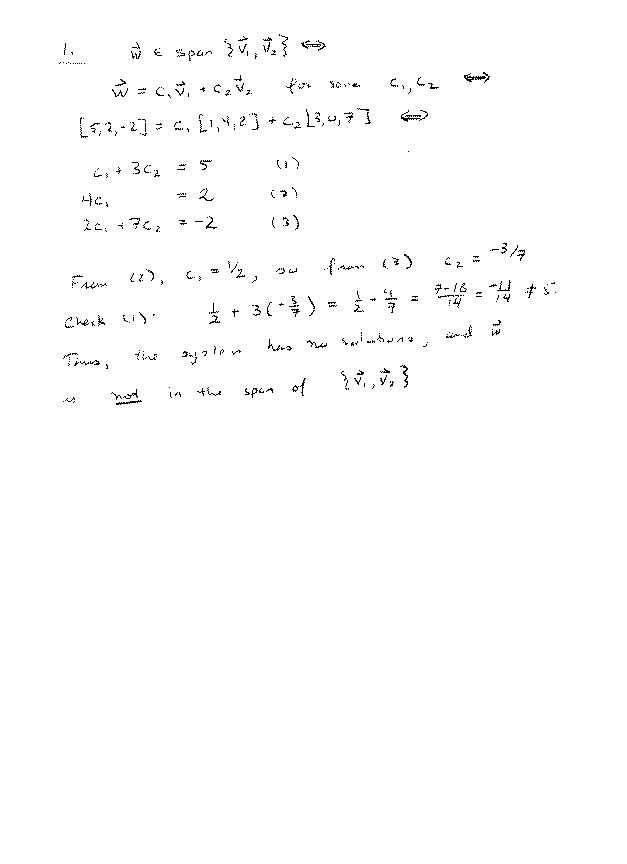 1. w⃗ ∈ span {v⃗₁, v⃗₂} ⟺
w⃗ = c₁v⃗₁ + c₂v⃗₂ for some c₁, c₂ ⟺
[5, 2, -2] = c₁ [1, 4, 2] + c₂ [3, 0, 7] ⟺
c₁ + 3c₂ = 5 (1)
4c₁ = 2 (2)
2c₁ + 7c₂ = -2 (3)
From (2), c₁ = 1/2, so from (3) c₂ = -3/7
Check (1): 1/2 + 3(-3/7) = 1/2 - 9/7 = (7-18)/14 = -11/14 ≠ 5.
Thus, the system has no solutions, and w⃗
is not in the span of {v⃗₁, v⃗₂}